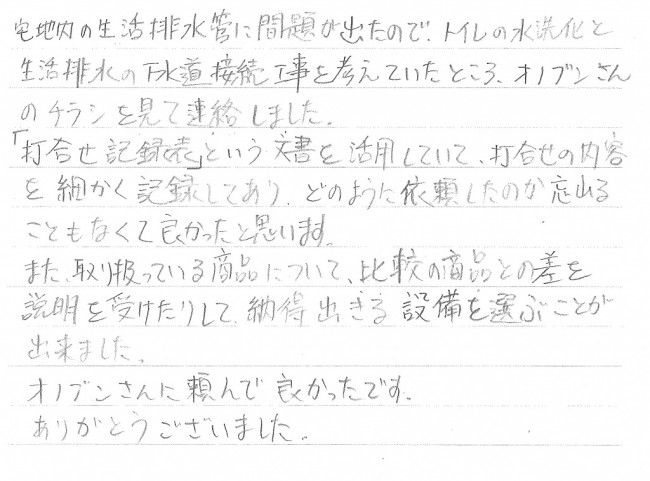 宅地内の生活排水管に問題が出たので、トイレの水洗化と
生活排水の下水道接続工事を考えていたところ、オノブンさん
のチラシを見て連絡しました。
「打合せ記録表」という文書を活用していて、打合せの内容
を細かく記録してあり、どのように依頼したのか忘れる
こともなくて良かったと思います。
また、取り扱っている商品について、比較の商品との差を
説明を受けたりして、納得出きる設備を選ぶことが
出来ました。
オノブンさんに頼んで良かったです。
ありがとうございました。